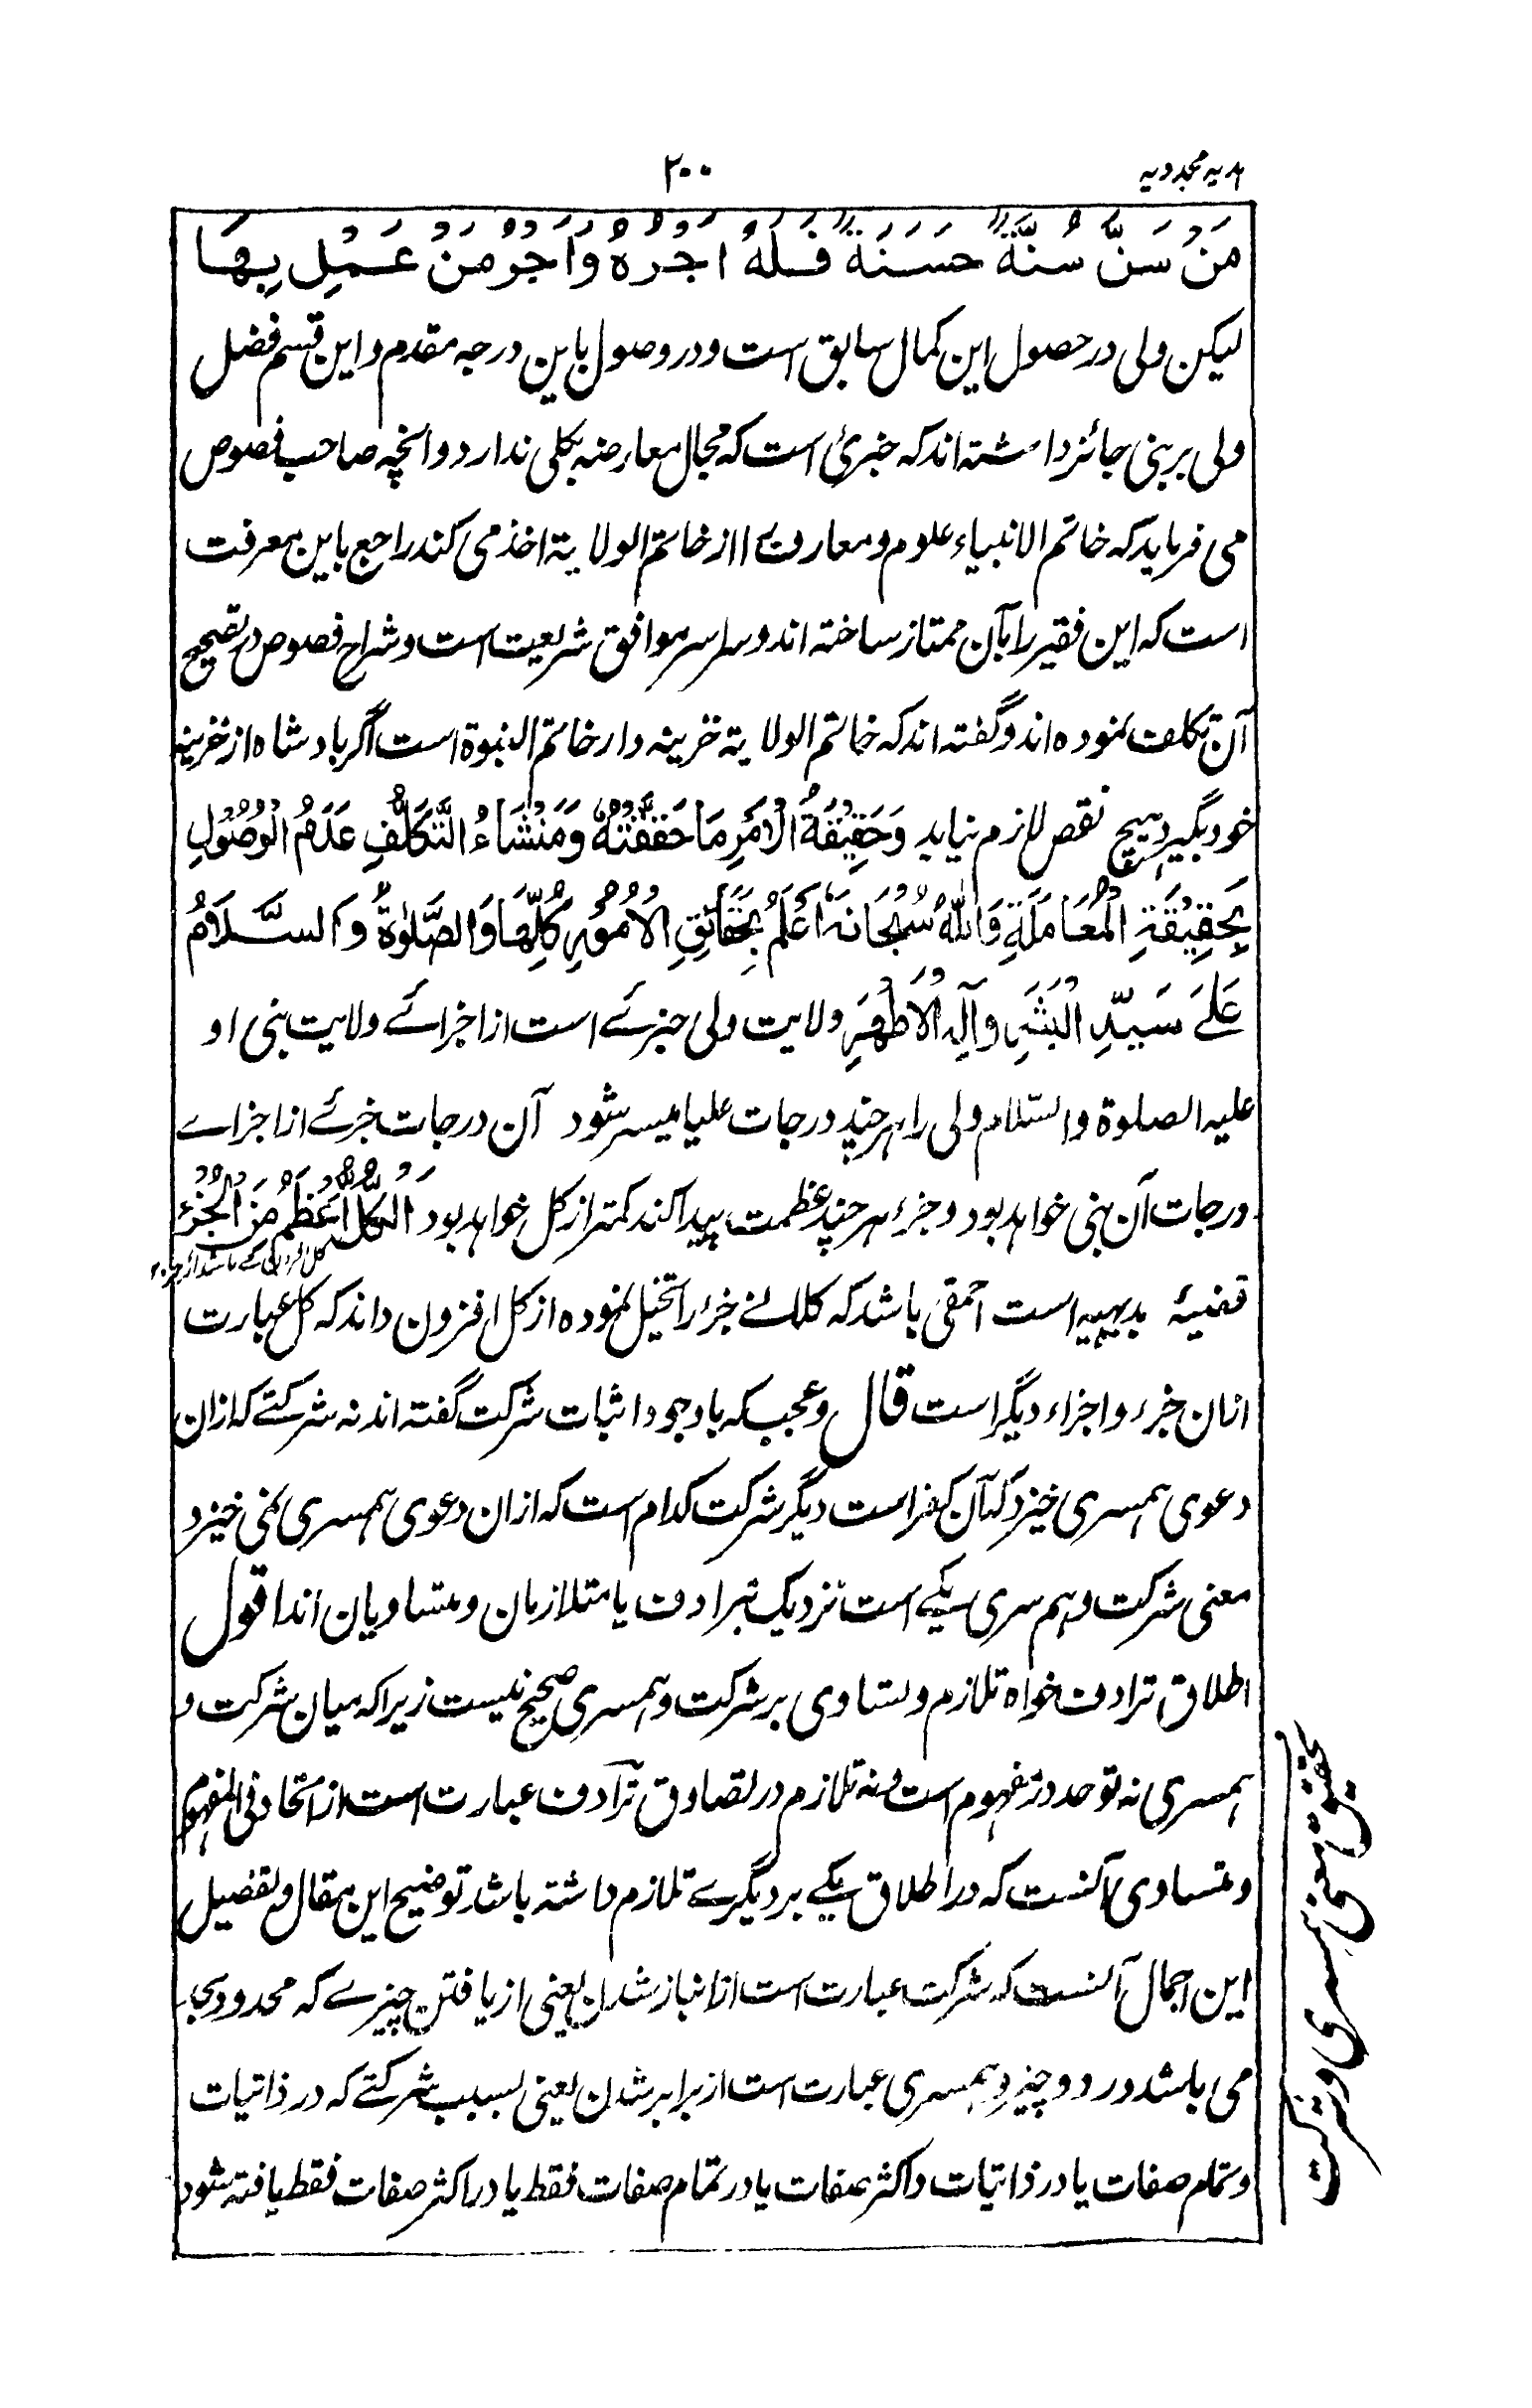 ہدیہ مجددیہ
۲۰۰
مَنْ سَنَّ سُنَّةً حَسَنَةً فَلَهُ اَجْرُهُ وَاَجْرُ مَنْ عَمِلَ بِهَا
لیکن ولی در حصول این کمال سابق است و در وصول باین درجہ مقدم و این قسم فضل
ولی بر نبی جائز داشتہ اند کہ جزئی است کہ مجال معارضہ بکلی ندارد و انچہ صاحب فصوص
می فرماید کہ خاتم الانبیاء علوم و معارف را از خاتم الولایۃ اخذ می کند راجع باین معرفت
است کہ این فقیر را بآن ممتاز ساختہ اند و سراسر موافق شریعت است و شراح فصوص در تصحیح
آن تکلف نمودہ اند و گفتہ اند کہ خاتم الولایۃ خزینہ دار خاتم النبوۃ است اگر بادشاہ از خزینہ
خود بگیرد ہیچ نقص لازم نیاید وَحَقِيْقَةُ الْاَمْرِ مَا حَقَّقْتُهُ وَمَنْشَاءُ التَّكَلُّفِ عَدَمُ الْوُصُوْلِ
بِحَقِيْقَةِ الْمُعَامَلَةِ وَاللّٰهُ سُبْحَانَهُ اَعْلَمُ بِحَقَائِقِ الْاُمُوْرِ كُلِّهَا وَالصَّلٰوةُ وَالسَّلَامُ
عَلٰے سَيِّدِ الْبَشَرِ وَآلِهِ الْاَطْهَرِ ولایت ولی جزئے است از اجزائے ولایت نبی او
علیہ الصلوۃ والسلام ولی را ہر چند درجات علیا میسر شود آن درجات جزئے از اجزاے
درجات آن نبی خواہد بود و جزء ہر چند عظمت پیدا کند کمتر از کل خواہد بود اَلْكُلُّ اَعْظَمُ مِنَ الْجُزْءِ
قضیۂ بدیہیہ است احمقی باشد کہ کلانے جزء را تخیل نمودہ از کل افزون داند کہ کل عبارت
ازان جزء و اجزاء دیگر است قال و عجب کہ باوجود اثبات شرکت گفتہ اند نہ شرکتے کہ ازان
دعوی ہمسری خیزد کہ آن کفر است دیگر شرکت کدام است کہ ازان دعوی ہمسری نمی خیزد
معنی شرکت و ہم سری یکے است نزدیک بترادف یا متلازمان و متساویان اند اقول
اطلاق ترادف خواہ تلازم و تساوی بر شرکت و ہمسری صحیح نیست زیرا کہ میان شرکت و
ہمسری نہ توحد در مفہوم است و نہ تلازم در تصادق ترادف عبارت است از اتحاد فی المفہوم
و تساوی آنست کہ در اطلاق یکے بر دیگرے تلازم داشتہ باشد توضیح این مقال و تفصیل
این اجمال آنست کہ شرکت عبارت است از انباز شدن یعنی از یافتن چیزے کہ محدودی
می باشد در دو چیز و ہمسری عبارت است از برابر شدن یعنی بسبب شرکتے کہ در ذاتیات
و تمام صفات یا در ذاتیات و اکثر صفات یا در تمام صفات فقط یا در اکثر صفات فقط یافتہ شود
تحقیق معنی ہمسری و شرکت